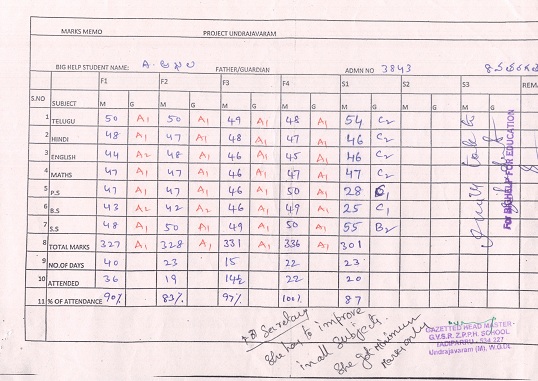 MARKS MEMO PROJECT UNDRAJAVARAM
BIG HELP STUDENT NAME: A. FATHER/GUARDIAN ADMN NO 3843
F1 F2 F3 F4 S1 S2 S3 REMA
S.NO SUBJECT M G M G M G M G M G M G M G
1 TELUGU 50 A1 50 A1 49 A1 48 A1 54 C2
2 HINDI 48 A1 47 A1 48 A1 47 A1 46 C2
3 ENGLISH 44 A2 48 A1 46 A1 45 A1 46 C2
4 MATHS 47 A1 47 A1 46 A1 47 A1 47 C2
5 P.S 47 A1 47 A1 46 A1 50 A1 28 C1
6 B.S 43 A2 42 A2 46 A1 49 A1 25 C1
7 S.S 48 A1 50 A1 49 A1 50 A1 55 B2
8 TOTAL MARKS 327 A1 328 A1 331 A1 336 A1 301
9 NO.OF DAYS 40 23 15 22 23
10 ATTENDED 36 19 14½ 22 20
11 % OF ATTENDANCE 90% 83% 97% 100% 87
For BIG HELP FOR EDUCATION
Secretary
She has to improve
in all subjects.
She got minimum
Marks only
GAZETTED HEAD MASTER
G.V.S.R. Z.P.P.H. SCHOOL
TADIPARRU - 534 227
Undrajavaram (M), W.G.Dt.